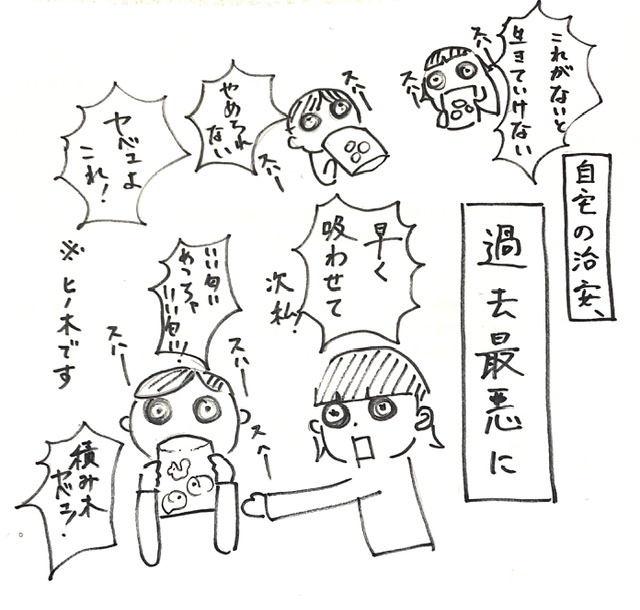 自宅の治安、
過去最悪に
これがないと
生きていけない
スー
スー
スー
スー
やめられ
ない
ヤベェよ
これ!
早く
吸わせて
次私!
いい匂い
めっちゃ
いい匂い!
スハー
スハー
スハー
※ヒノキです
積み木
ヤベェ!